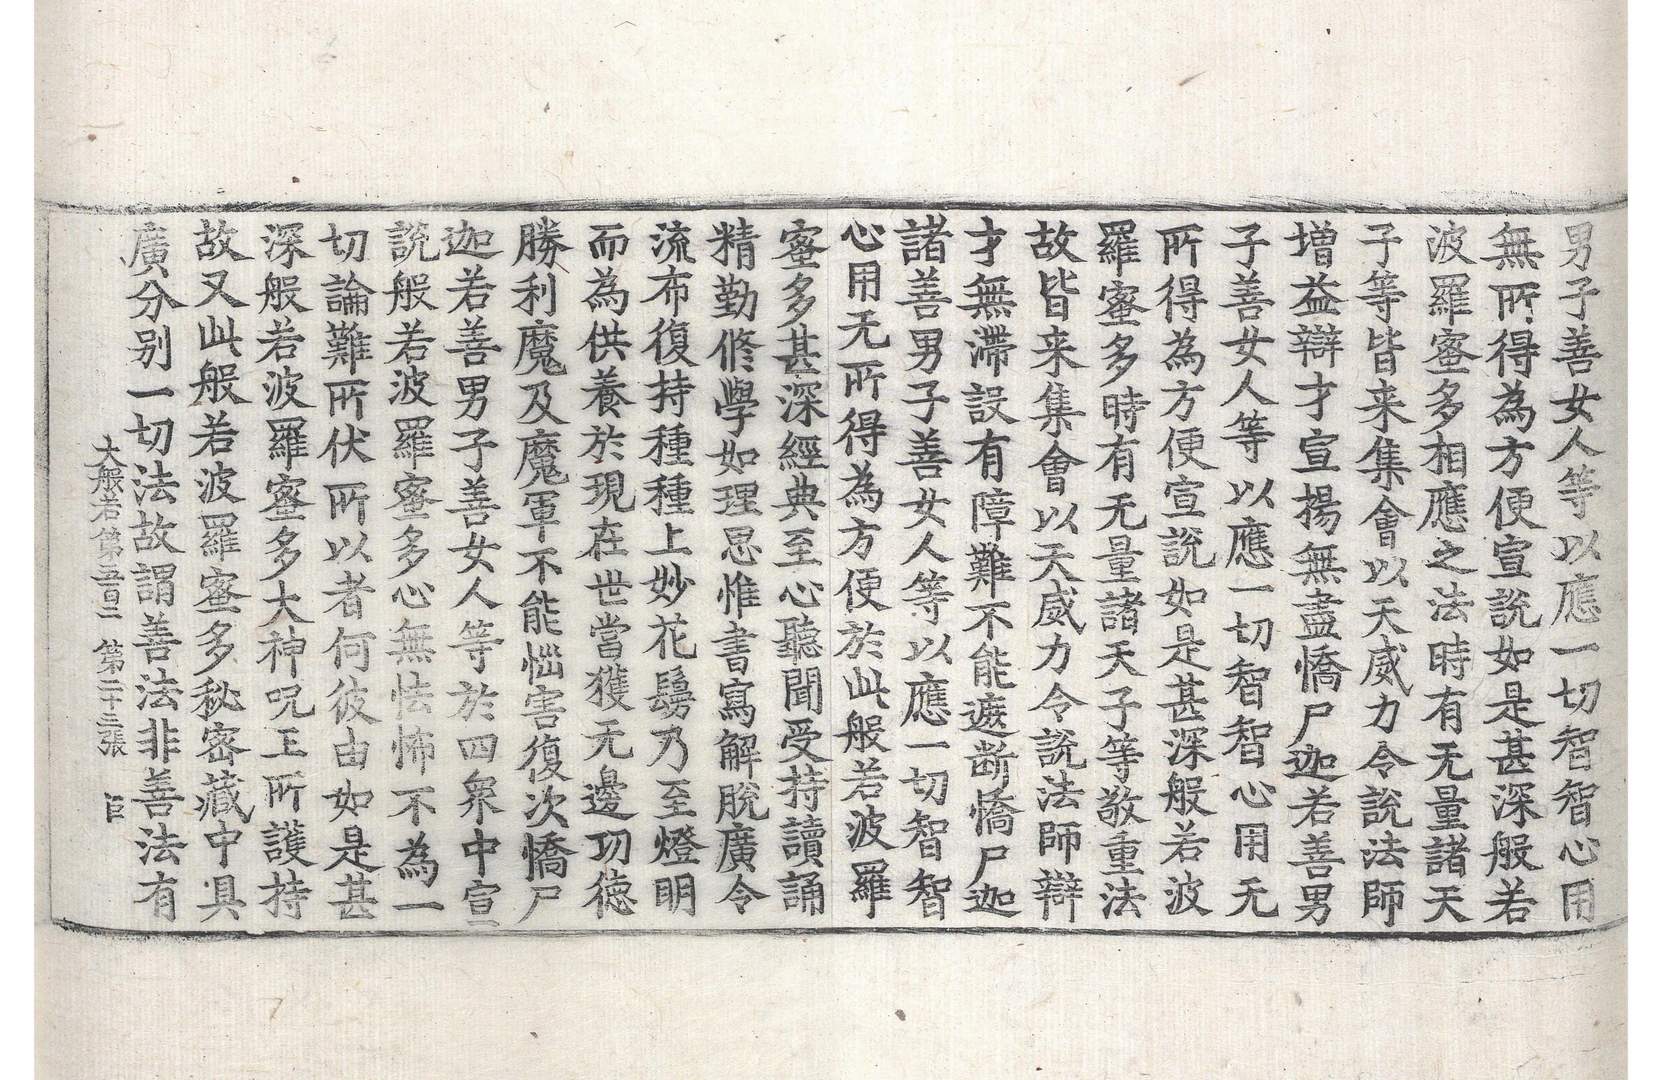 男子善女人等以應一切智智心用
無所得為方便宣說如是甚深般若
波羅蜜多相應之法時有无量諸天
子等皆来集會以天威力令說法師
增益辯才宣揚無盡憍尸迦若善男
子善女人等以應一切智智心用无
所得為方便宣說如是甚深般若波
羅蜜多時有无量諸天子等敬重法
故皆来集會以天威力令說法師辯
才無滯設有障難不能遮断憍尸迦
諸善男子善女人等以應一切智智
心用无所得為方便於此般若波羅
蜜多甚深經典至心聽聞受持讀誦
精勤修學如理思惟書寫解脫廣令
流布復持種種上妙花鬘乃至燈明
而為供養於現在世當獲无邊功德
勝利魔及魔軍不能惱害復次憍尸
迦若善男子善女人等於四衆中宣
說般若波羅蜜多心無怯怖不為一
切論難所伏所以者何彼由如是甚
深般若波羅蜜多大神呪王所護持
故又此般若波羅蜜多秘密藏中具
廣分别一切法故謂善法非善法有
大般若第五百二 第二十三張